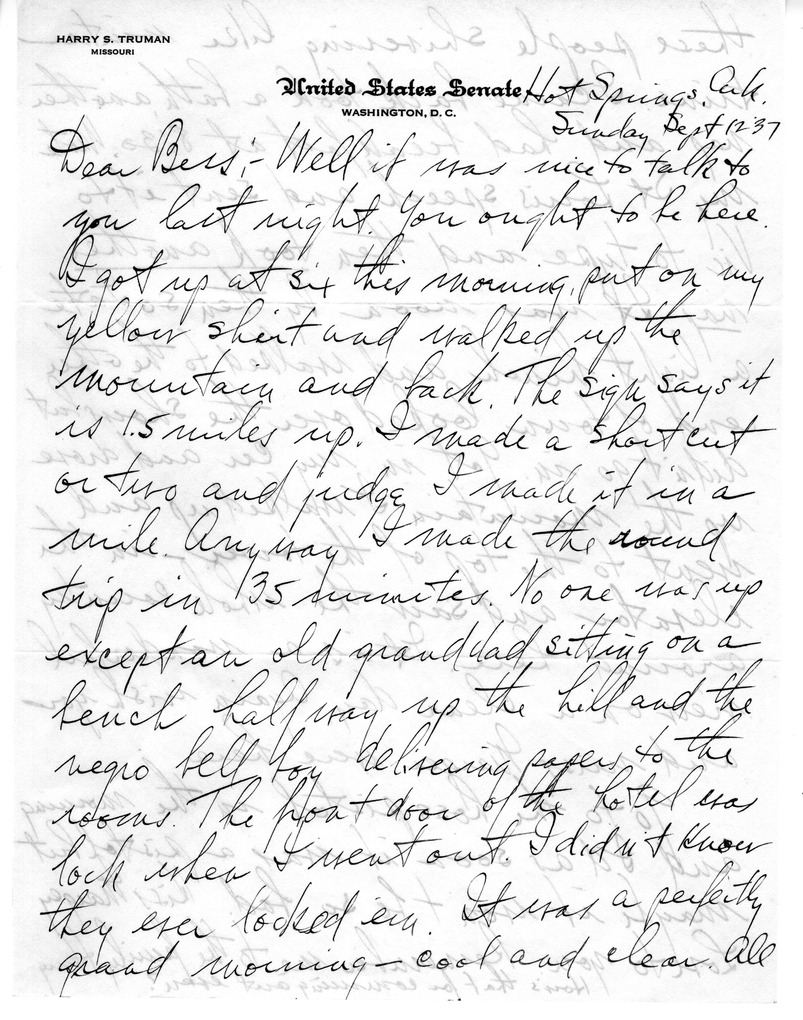 HARRY S. TRUMAN
MISSOURI
United States Senate
WASHINGTON, D. C.
Hot Springs, Ark.
Sunday Sept 12 37
Dear Bess:- Well it was nice to talk to
you last night. You ought to be here.
I got up at six this morning, put on my
yellow shirt and walked up the
mountain and back. The sign says it
is 1.5 miles up. I made a short cut
or two and judge I made it in a
mile. Anyway I made the round
trip in 35 minutes. No one was up
except an old granddad sitting on a
bench half way up the hill and the
negro bell boy delivering papers to the
rooms. The front door of the hotel was
lock when I went out. I didn't know
they ever locked em. It was a perfectly
grand morning - cool and clear. All